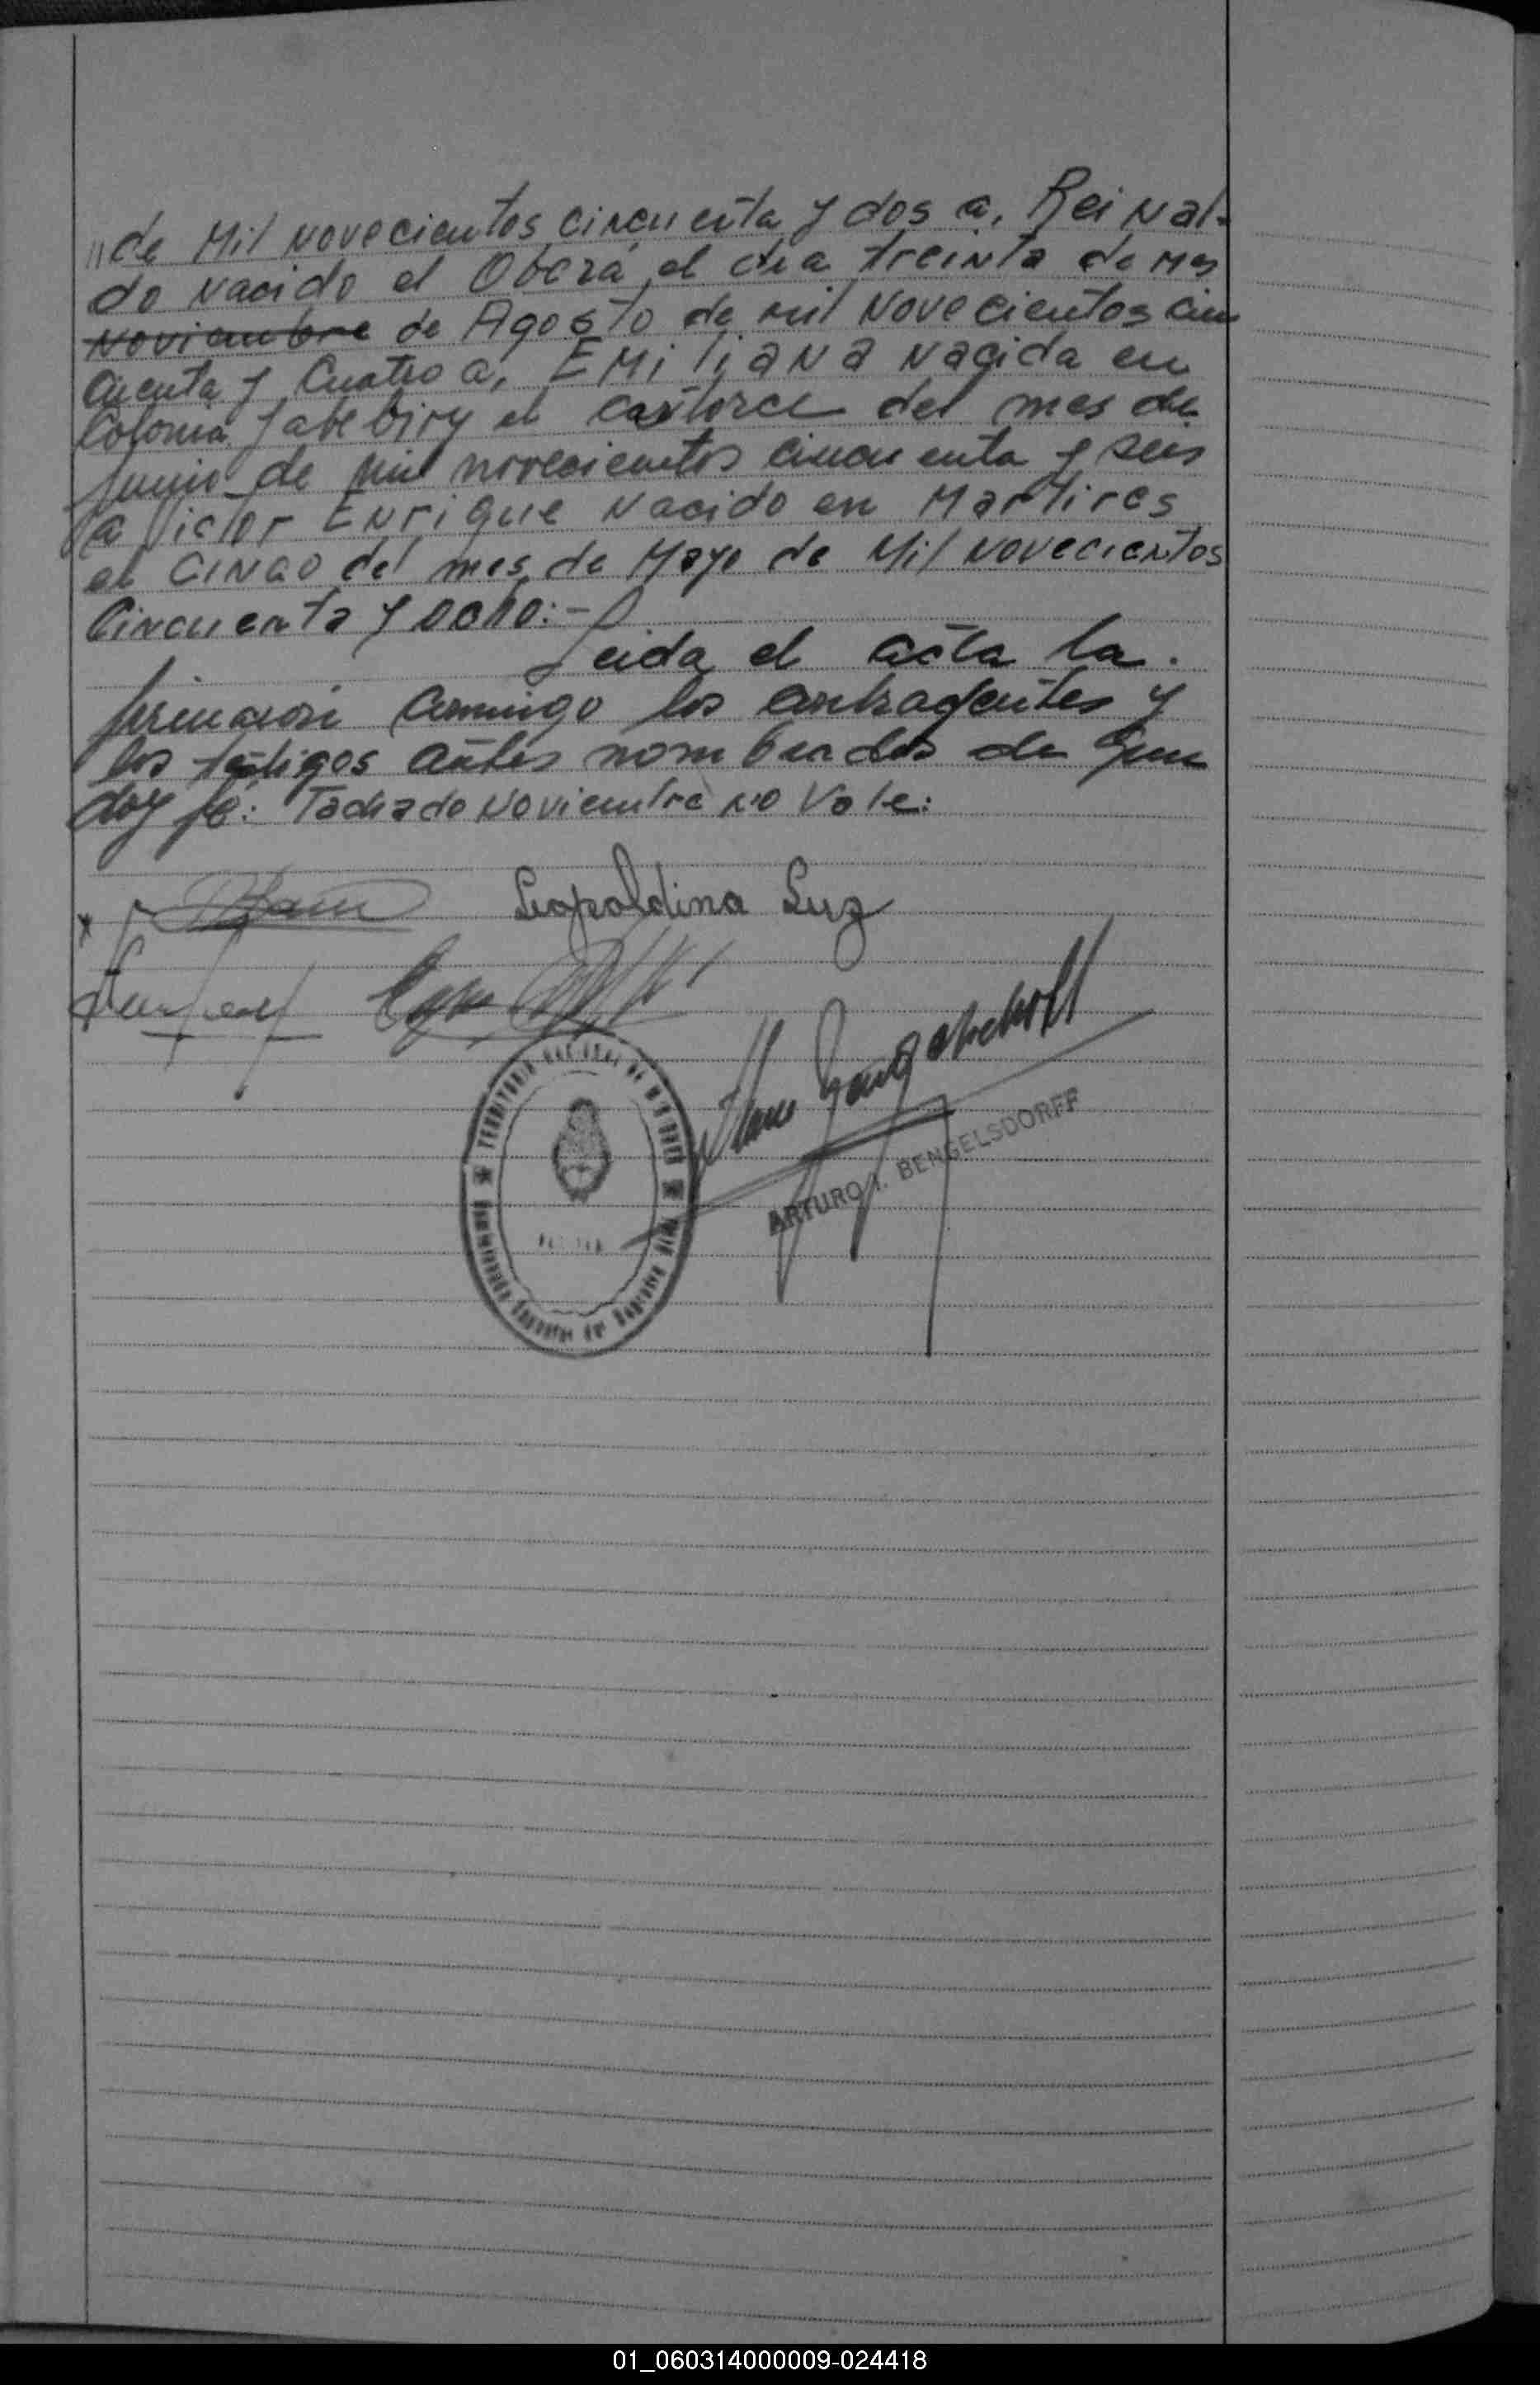 "de Mil Novecientos cincuenta y dos a, Reinal-
do nacido el Oberá el dia treinta de mes
Noviembre de Agosto de mil Novecientos cin
cuenta y Cuatro a, EMiliana nacida en
Colonia Yabebiry el catorce del mes de
junio de mil novecientos cincuenta y seis
a Victor Enrique nacido en Martires
el cinco del mes de Mayo de Mil novecientos
Cincuenta y ocho:-
Leida el acta la
firmaron conmigo los contrayentes y
los testigos antes nombrados de que
doy fe: Tachado Noviembre no Vale:
Leopoldina Luz
ARTURO I. BENGELSDORFF
01_060314000009-024418